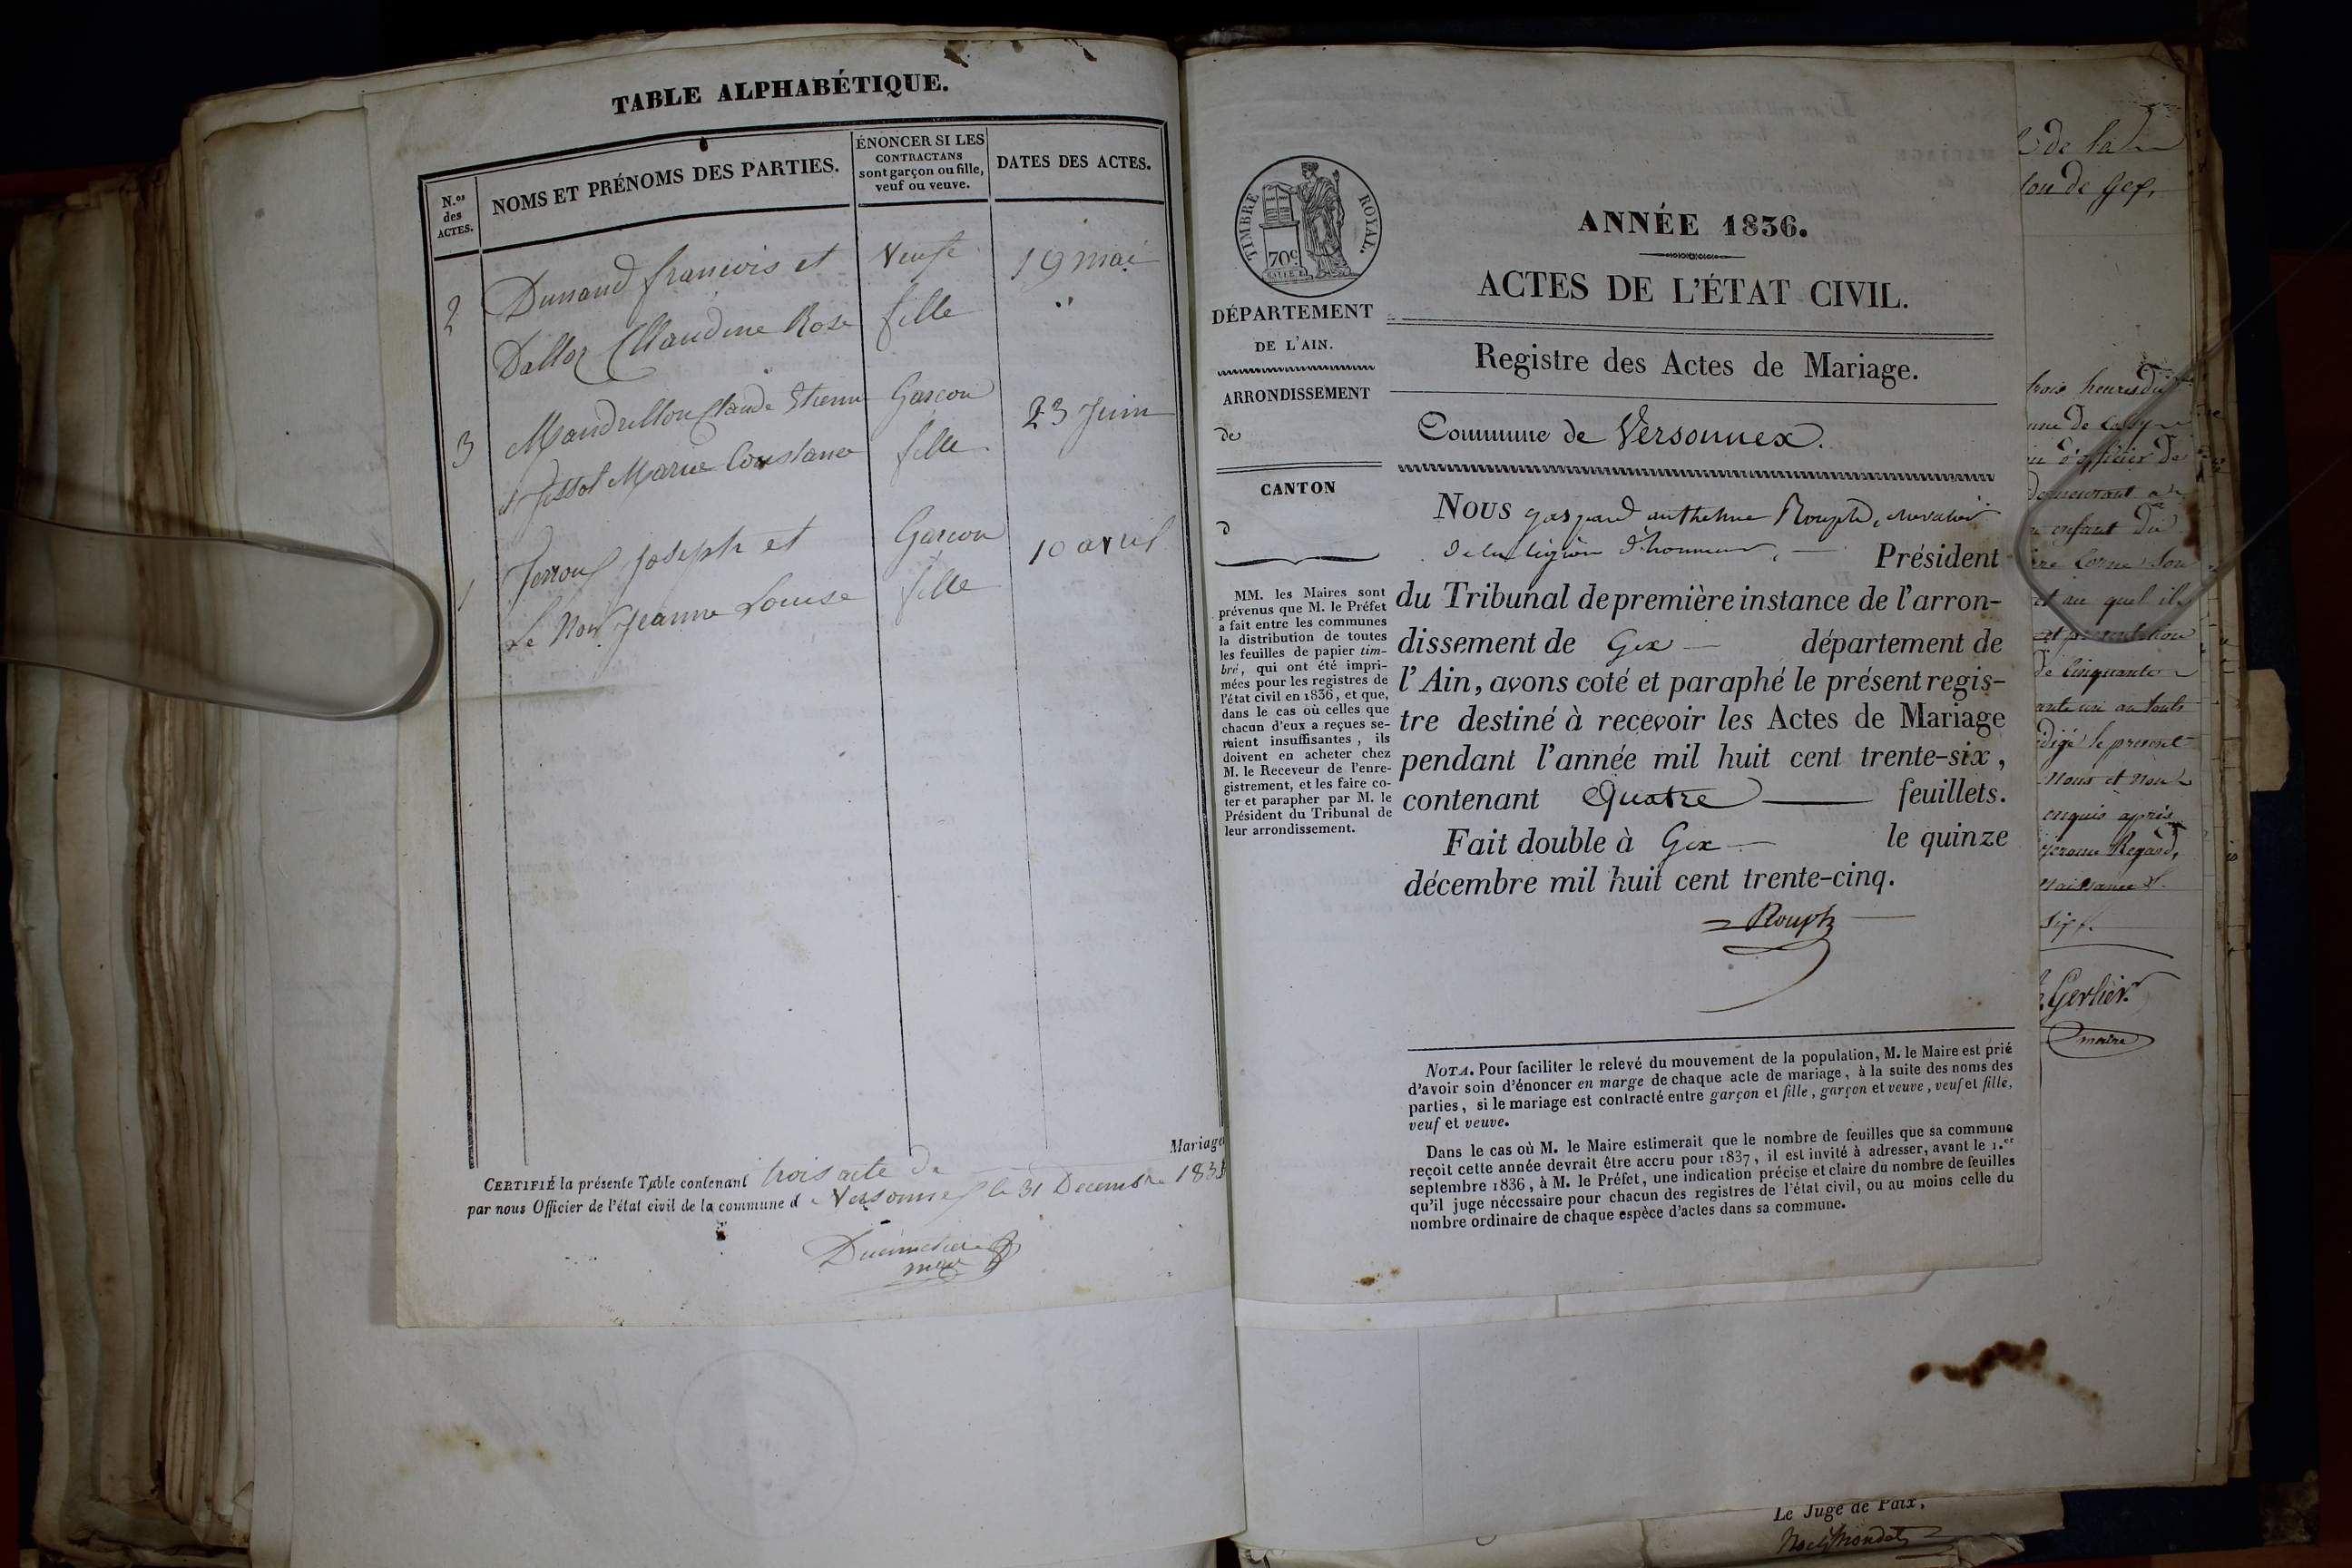 TABLE ALPHABÉTIQUE.
N.os des ACTES.
NOMS ET PRÉNOMS DES PARTIES.
ÉNONCER SI LES
CONTRACTANS
sont garçon ou fille,
veuf ou veuve.
DATES DES ACTES.
2 Dunand francois et Veuf 19 mai
Dalloz Claudine Rose fille "
3 Mandrillon Claude Etienne Garcon 23 Juin
et Jissot Marie Constance fille
1 Perroux Joseph et Garcon 10 avril
Le Noir Jeanne Louise fille
Mariage
CERTIFIÉ la présente Table contenant trois acte de
par nous Officier de l'état civil de la commune de Versonnex le 31 Decembre 183
Ducimetiere
TIMBRE ROYAL.
70c
DÉPARTEMENT
DE L'AIN.
ARRONDISSEMENT
de
CANTON
d
MM. les Maires sont
prévenus que M. le Préfet
a fait entre les communes
la distribution de toutes
les feuilles de papier tim-
bré, qui ont été impri-
mées pour les registres de
l'état civil en 1836, et que,
dans le cas où celles que
chacun d'eux a reçues se-
raient insuffisantes, ils
doivent en acheter chez
M. le Receveur de l'enre-
gistrement, et les faire co-
ter et parapher par M. le
Président du Tribunal de
leur arrondissement.
ANNÉE 1836.
ACTES DE L'ÉTAT CIVIL.
Registre des Actes de Mariage.
Commune de Versonnex.
Nous gaspard anthelme Rouph, chevalier
de la légion d'honneur, Président
du Tribunal de première instance de l'arron-
dissement de Gex département de
l'Ain, avons coté et paraphé le présent regis-
tre destiné à recevoir les Actes de Mariage
pendant l'année mil huit cent trente-six,
contenant Quatre feuillets.
Fait double à Gex le quinze
décembre mil huit cent trente-cinq.
Rouph
NOTA. Pour faciliter le relevé du mouvement de la population, M. le Maire est prié
d'avoir soin d'énoncer en marge de chaque acte de mariage, à la suite des noms des
parties, si le mariage est contracté entre garçon et fille, garçon et veuve, veuf et fille,
veuf et veuve.
Dans le cas où M. le Maire estimerait que le nombre de feuilles que sa commune
reçoit cette année devrait être accru pour 1837, il est invité à adresser, avant le 1.er
septembre 1836, à M. le Préfet, une indication précise et claire du nombre de feuilles
qu'il juge nécessaire pour chacun des registres de l'état civil, ou au moins celle du
nombre ordinaire de chaque espèce d'actes dans sa commune.
de la
de Gex,
trois heures du
d'officier de
demeurant a
enfant du
Corne son
et au quel il
de Cinquante
le present
Nous et nou
enquis après
Jerome Regard,
Gerlier
maire
Le Juge de Paix,